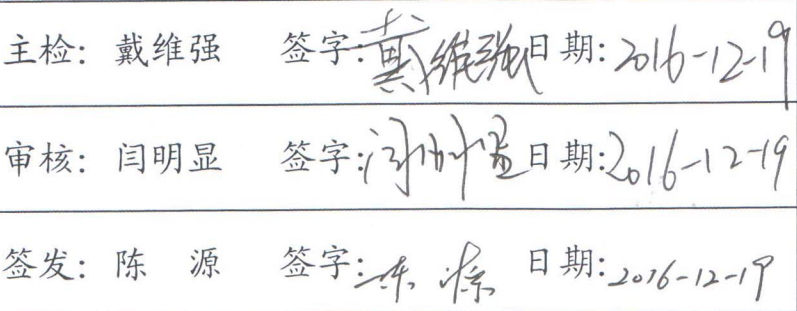 主检: 戴维强 签字: 戴维强 日期: 2016-12-19
审核: 闫明显 签字: 闫明显 日期: 2016-12-19
签发: 陈 源 签字: 陈源 日期: 2016-12-19